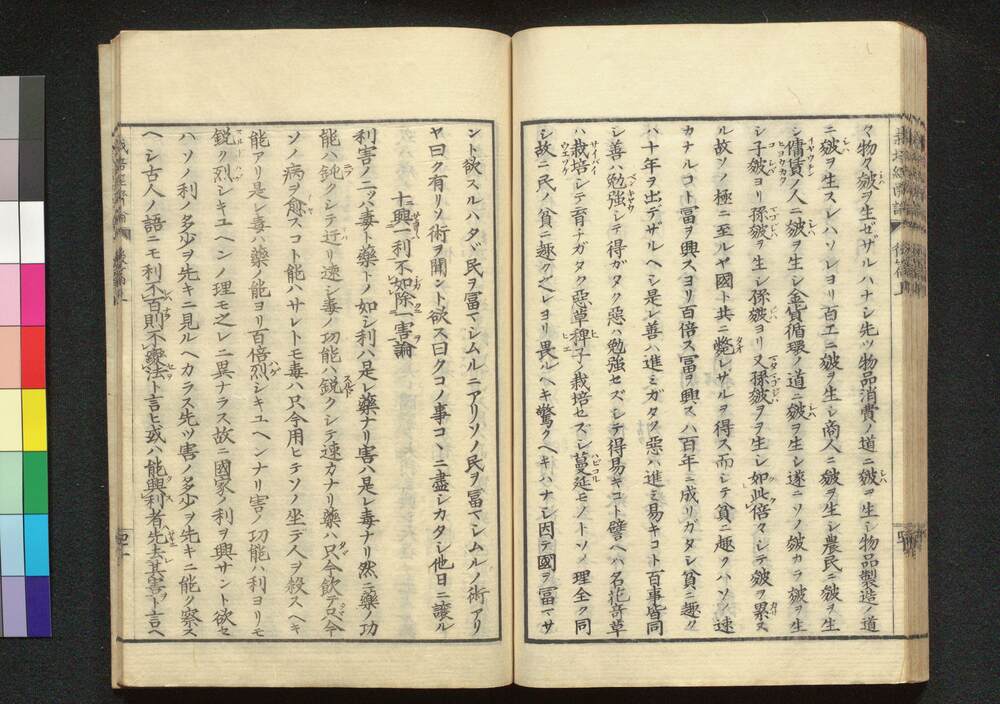 々物々皴ヲ生ゼザルハナシ先ツ物品消費ノ道ニ皴ヲ生シ物品製造ノ道
ニ皴ヲ生スレハソレヨリ百工ニ皴ヲ生シ商人ニ皴ヲ生シ農民ニ皴ヲ生
シ傭賃ノ人ニ皴ヲ生シ金貨循環ノ道ニ皴ヲ生シ遂ニソノ皴カラ皴ヲ生
シ子皴ヨリ孫皴ヲ生シ孫皴ヨリ又孫皴ヲヲ生シ如此倍々シテ皴ヲ累ヌ
ル故ソノ極ニ至ルヤ國ト共ニ斃レサルヲ得ス而シテ貧ニ趣クハソノ速
カナルコト冨ヲ興スヨリ百倍ス冨ヲ興スハ百年ニ成リガタシ貧ニ趣ク
ハ十年ヲ出テザルヘシ是レ善ハ進ミガタク惡ハ進ミ易キコト百事皆同
シ善ハ勉強シテ得ガタク惡ハ勉強セズシテ得易キコト譬ヘハ名花奇草
ハ栽培シテ育チガタク惡草稗子ノ栽培セズシ蔓延モノトソノ理全ク同
シ故ニ民ノ貧ニ趣クハコレヨリ畏ルヘキ驚クヘキハナシ因テ國ヲ冨マサ
ント欲スルハタヾ民ヲ冨マシムルニアリソノ民ヲ冨マシムルノ術アリ
ヤ曰ク有リソノ術ヲ聞ント欲ス曰クコノ事コヽニ盡シカタシ他日ニ讓ル
十二興一利不如除一害論
利害ノ二ツハ毒ト藥トノ如シ利ハ是レ藥ナリ害ハ是レ毒ナリ然ニ藥ノ功
能ハ鈍クシテ近リ遠シ毒ノ功能ハ鋭クシテ速カナリ藥ハ只今飲テ只今
ソノ病ヲ愈スコト能ハサレトモ毒ハ只今用ヒテソノ坐デ人ヲ殺スヘキ
能アリ是レ毒ハ藥ノ能ヨリ百倍烈シキユヘンナリ害ノ功能ハ利ヨリモ
鋭ク烈シキユヘンノ理モ之レニ異ナラス故ニ國家ノ利ヲ興サント欲セ
ハソノ利ノ多少ヲ先キニ見ルヘカラス先ツ害ノ多少ヲ先キニ能ク察ス
ヘシ古人ノ語ニモ利不百則不變法ト言ヒ或ハ能興利者先去其害ト言ヘ